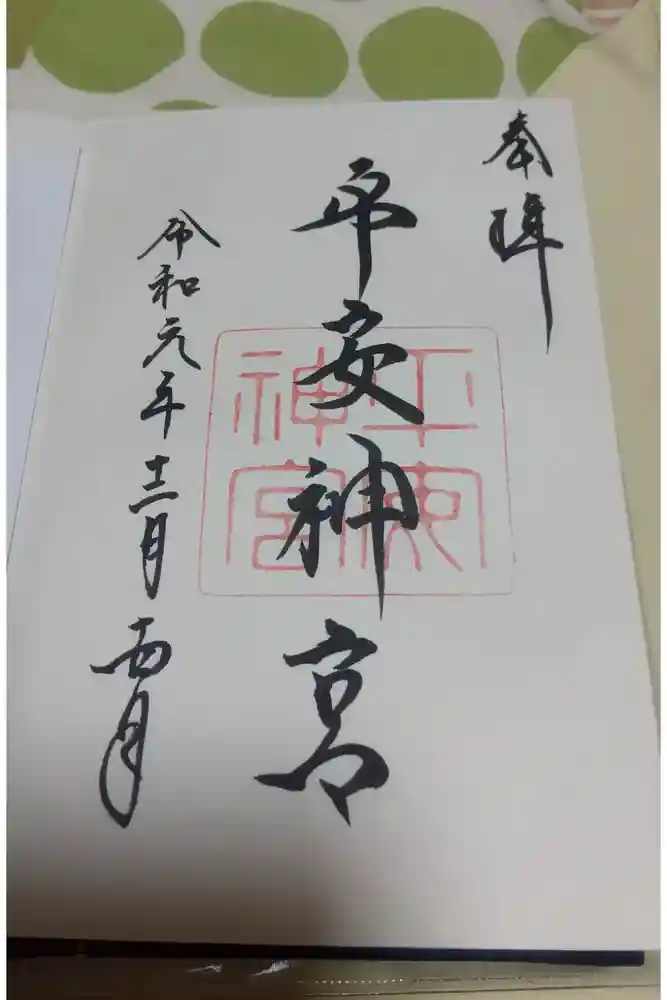 奉拝
平安神宮
平安
神宮
令和元年十二月十四日